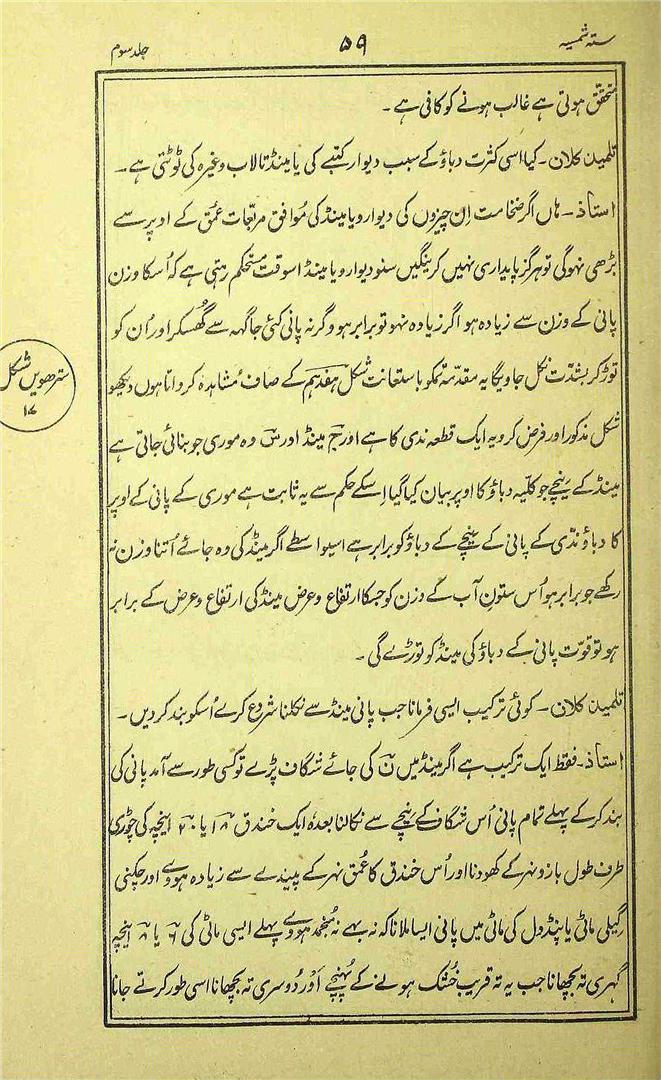 ستہ شمسیہ
۵۹
جلد سوم
متحقق ہوتی ہے غالب ہونے کو کافی ہے ۔
تلمیذ کلان ۔ کیا اسی کثرت دباؤ کے سبب دیوار کتبے کی یا مینڈ تالاب وغیرہ کی ٹوٹتی ہے ۔
استاذ ۔ ہاں اگر ضخامت اِن چیزوں کی دیوار و یا مینڈ کی مُوافق مربّعات عمق کے اوپر سے
بڑھی نہوگی تو ہرگز پایداری نہیں کرینگیں سنو دیوار و یا مینڈ اسوقت مستحکم رہتی ہے کہ اُسکا وزن
پانی کے وزن سے زیادہ ہو اگر زیادہ نہو تو برابر ہو وگرنہ پانی کئی جاگہہ سے گھُسکر اور اُن کو
توڑ کر بشدّت نکل جاویگا یہ مقدّمہ تمکو باستعانت شکل ہفدہم کے صاف مُشاہدہ کرواتا ہوں دیکھو
سترھویں شکل
۱۷
شکل مذکور اور فرض کرو یہ ایک قطعہ ندی کا ہے اور ج مینڈ اور س وہ موری جو بنائی جاتی ہے
مینڈ کے نیچے جو کلّیہ دباؤ کا اوپر بیان کیا گیا اِسکے حکم سے یہ ثابت ہے موری کے پانی کے اوپر
کا دباؤ ندّی کے پانی کے نیچے کے دباؤ کو برابر ہے اسیواسطے اگر مینڈ کی وہ جائے اُتنا وزن نہ
رکھے جو برابر ہو اُس ستون آب کے وزن کو جسکا ارتفاع و عرض مینڈ کی ارتفاع و عرض کے برابر
ہو تو قوّت پانی کے دباؤ کی مینڈ کو توڑے گی ۔
تلمیذ کلان ۔ کوئی ترکیب ایسی فرمانا جب پانی مینڈ سے نکلنا شروع کرے اُسکو بند کر دیں ۔
استاذ ۔ فقط ایک ترکیب ہے اگر مینڈ میں ن کی جائے شگاف پڑے تو کسی طور سے آمد پانی کی
بند کر کے پہلے تمام پانی اُس شگاف کے نیچے سے نکالنا بعدہٗ ایک خندق ۱۸ یا ۲۰ اینچہ کی چوڑی
طرف طول بازو نہر کے کھودنا اور اُس خندق کا عُمق نہر کے پیندے سے زیادہ ہووے اور چکنی
گیلی ماٹی یا پنڈول کی ماٹی میں پانی ایسا ملانا کہ نہ بہے نہ مُنجمد ہووے پہلے ایسی ماٹی کی ۶ یا ۸ اینچہ
گہری تہ بچھانا جب یہ تہ قریب خُشک ہونے کے پہُنچے اَور دُوسری تہ بچھانا اسی طور کرتے جانا